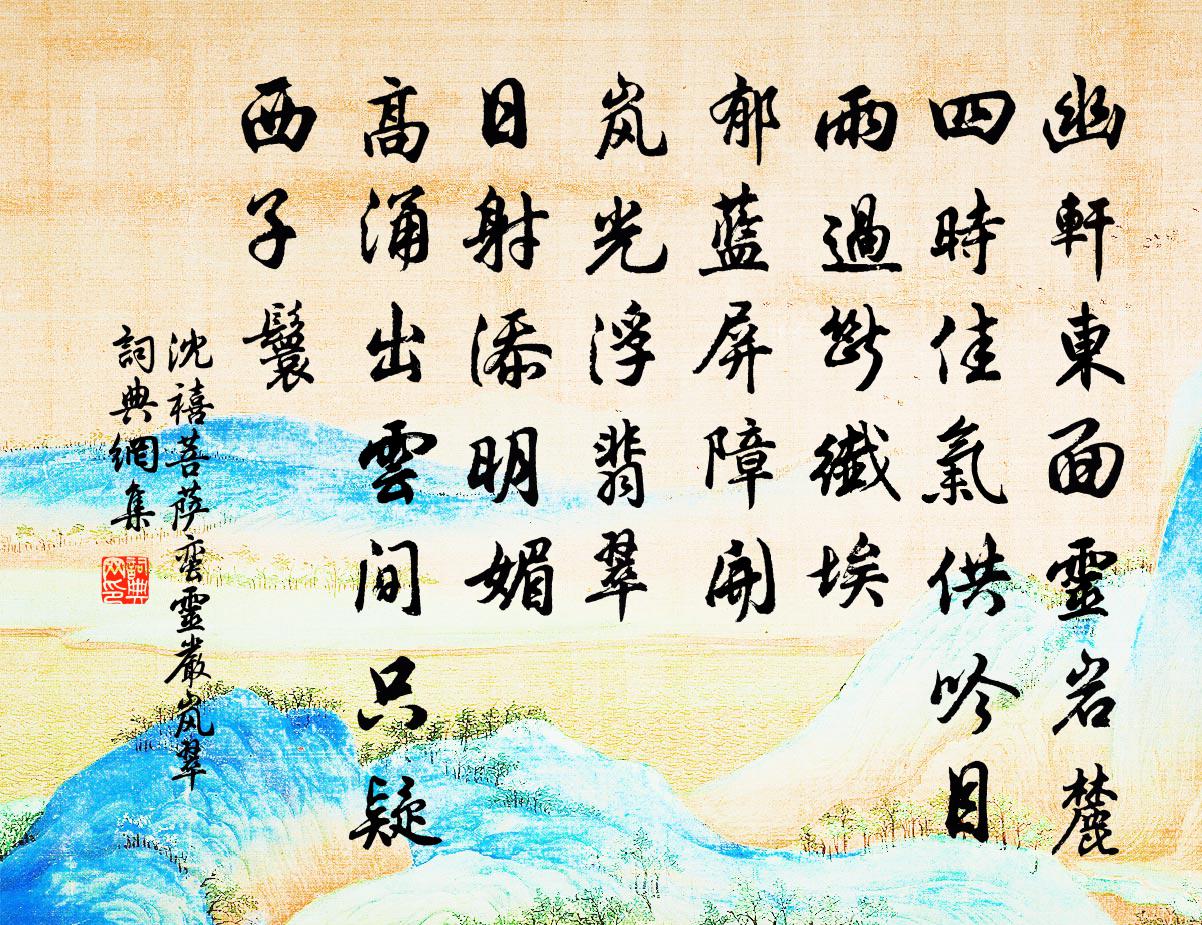 幽軒東面靈岩麓
四時佳氣供吟目
雨過斷纖埃
郁藍屏障開
岚光浮翡翠
日射添明媚
高涌出雲間只疑
西子鬟
沈禧菩萨蛮靈嚴岚翠
詞典網集
詞典網印